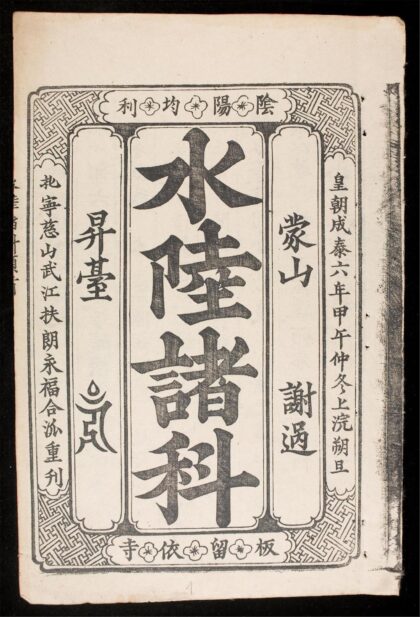 陰陽均利
皇朝成泰六年甲午仲冬上浣朔旦
蒙山 謝過
水陸諸科
昇臺
北寧慈山武江扶朗永福合沠重刊
板留依寺